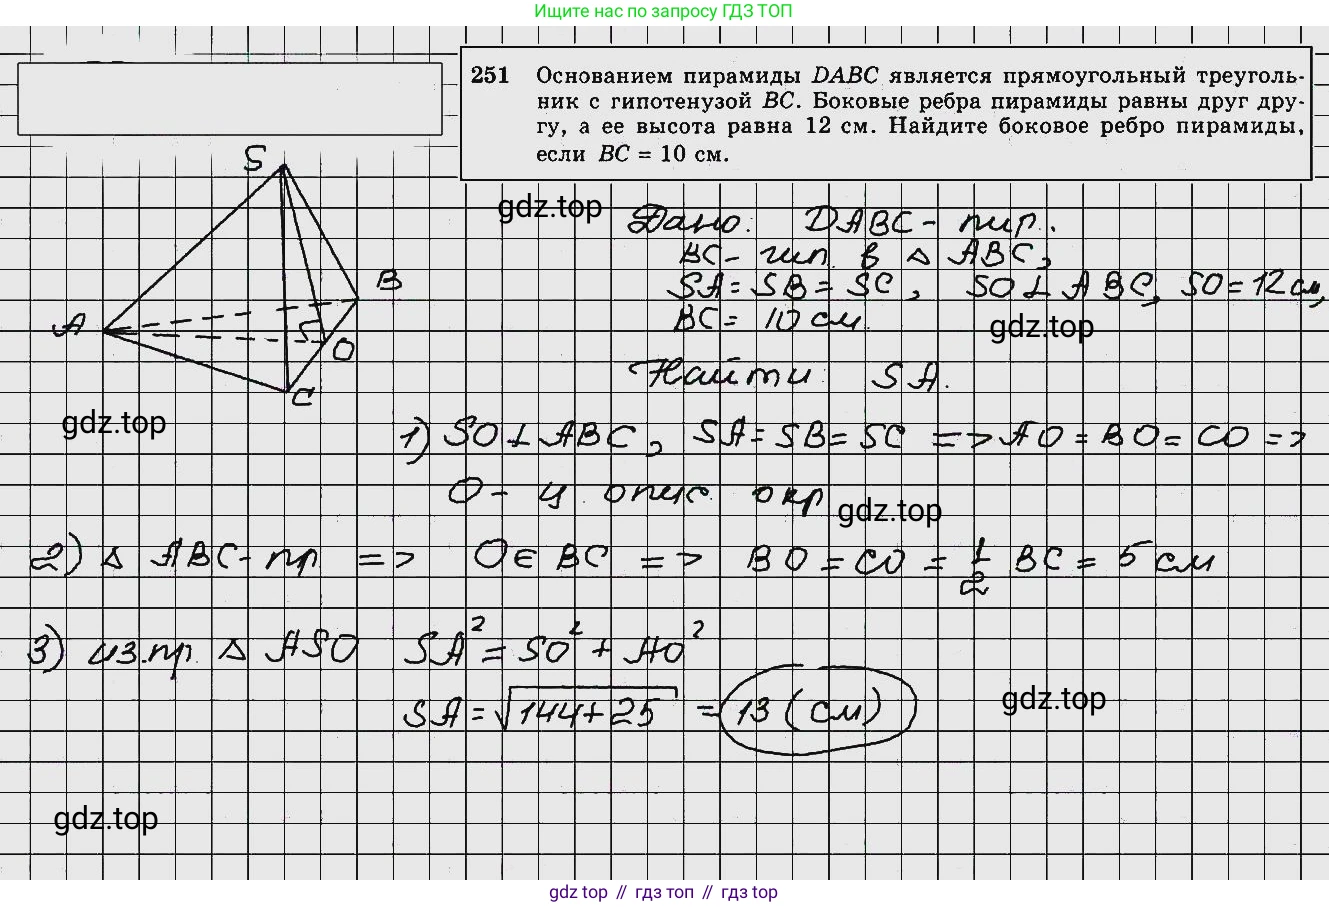 Ищите нас по запросу ГДЗ ТОП
251 Основанием пирамиды DABC является прямоугольный треуголь-
ник с гипотенузой BC. Боковые ребра пирамиды равны друг дру-
гу, а ее высота равна 12 см. Найдите боковое ребро пирамиды,
если BC = 10 см.
S
B
A
O
C
gdz.top
Дано: DABC - пир.
BC - гип. в △ ABC,
SA = SB = SC, SO ⊥ ABC, SO = 12 см,
BC = 10 см.
gdz.top
Найти: SA.
gdz.top
1) SO ⊥ ABC, SA = SB = SC => AO = BO = CO =>
O - ц. опис. окр.
gdz.top
2) △ ABC - пр. => O ∈ BC => BO = CO = 1/2 BC = 5 см
3) из пр. △ ASO SA² = SO² + AO²
SA = √144+25 = 13 (см)
gdz.top
gdz.top
gdz top // гдз топ // gdz top